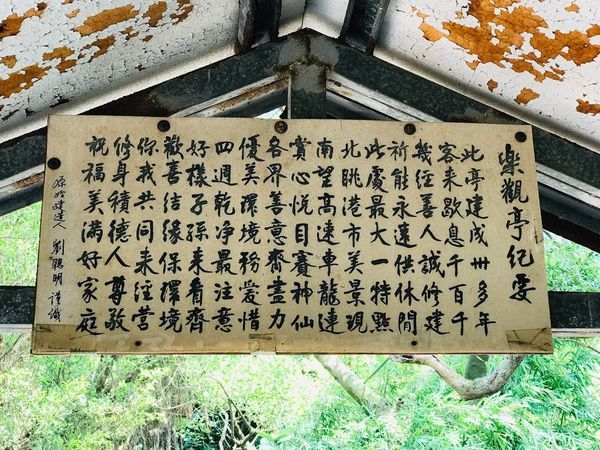 樂觀亭紀要
此亭建成卅多年
客来歇息千百千
幾經善人誠修建
祈能永遠供休閒
此處最大一特點
北眺港市美景現
南望高速車龍連
賞心悅目賽神仙
各界善意齊盡力
優美環境務愛惜
四週乾净最注意
好樣子孫来看齊
歡喜結緣保環境
你我共同来經營
修身積德人尊敬
祝福美滿好家庭
源始建造人 劉聰明 謹識